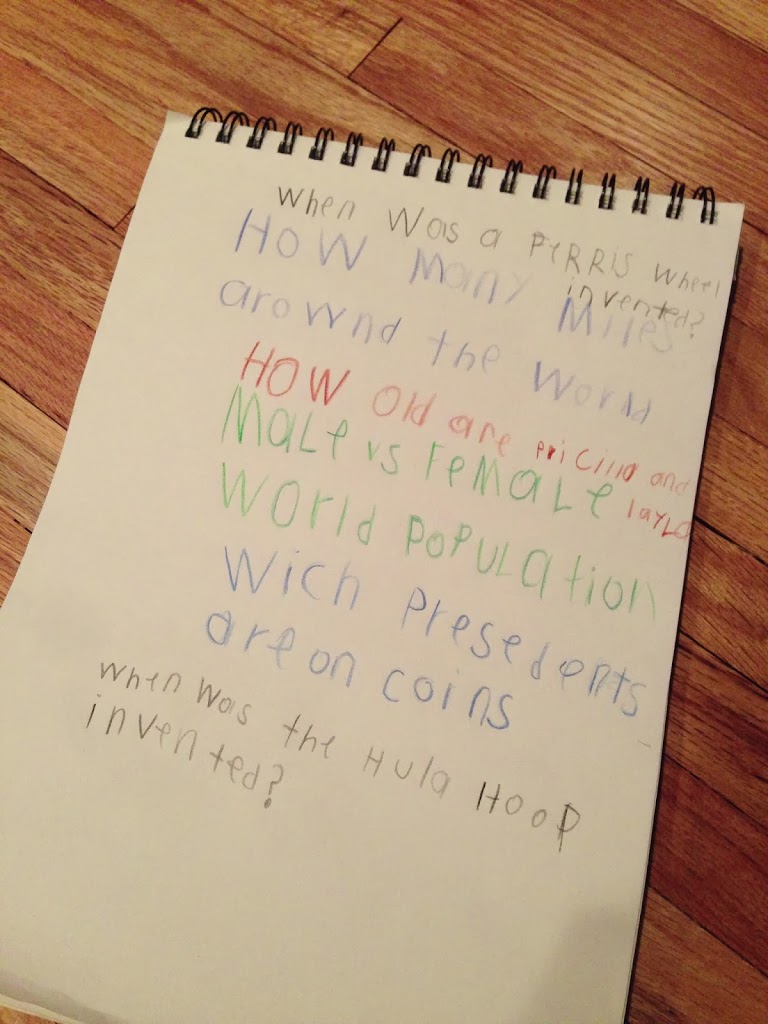 When Was a FeRRiS Wheel
invented?
How Many Miles
arownd the World
HOW Old are pricilla and
layla
Male vs female
World population
Wich presedents
are on coins
When Was the Hula Hoop
invented?